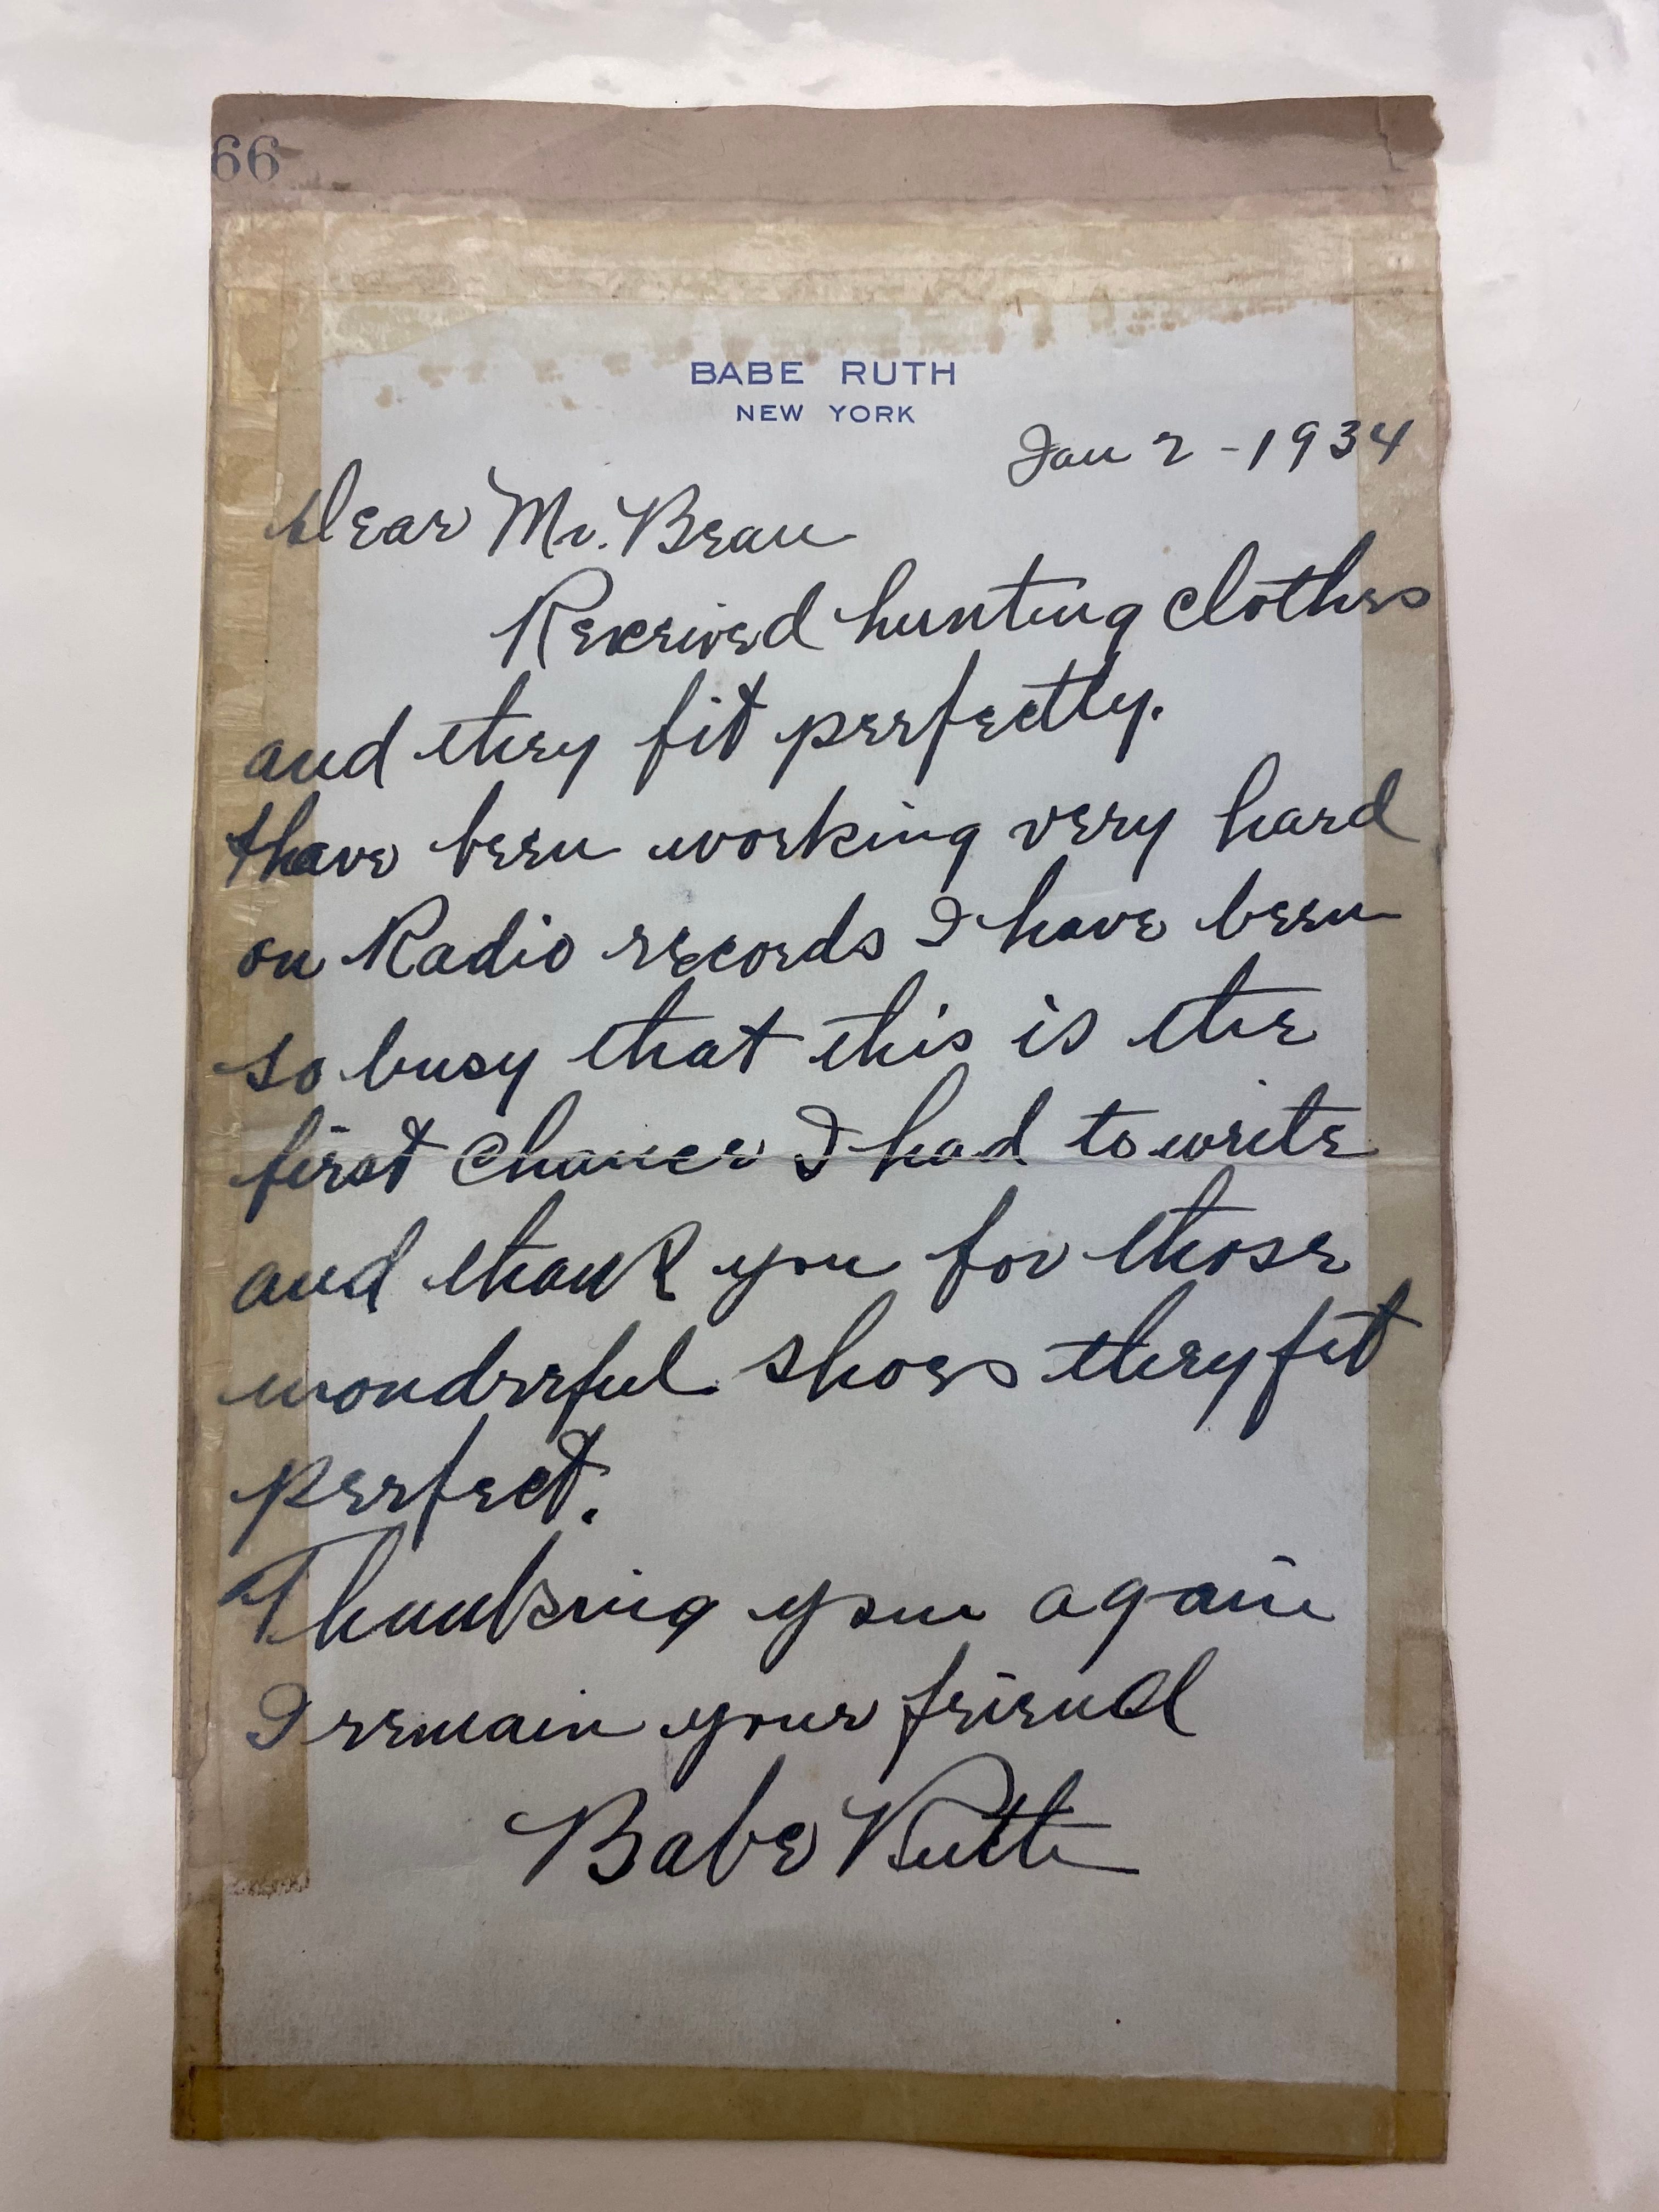 66
BABE RUTH
NEW YORK
Jan 2 - 1934
Dear Mr. Bean
Received hunting clothes
and they fit perfectly.
I have been working very hard
on Radio records I have been
so busy that this is the
first chance I had to write
and thank you for those
wonderful shoes they fit
perfect.
Thanking you again
I remain your friend
Babe Ruth